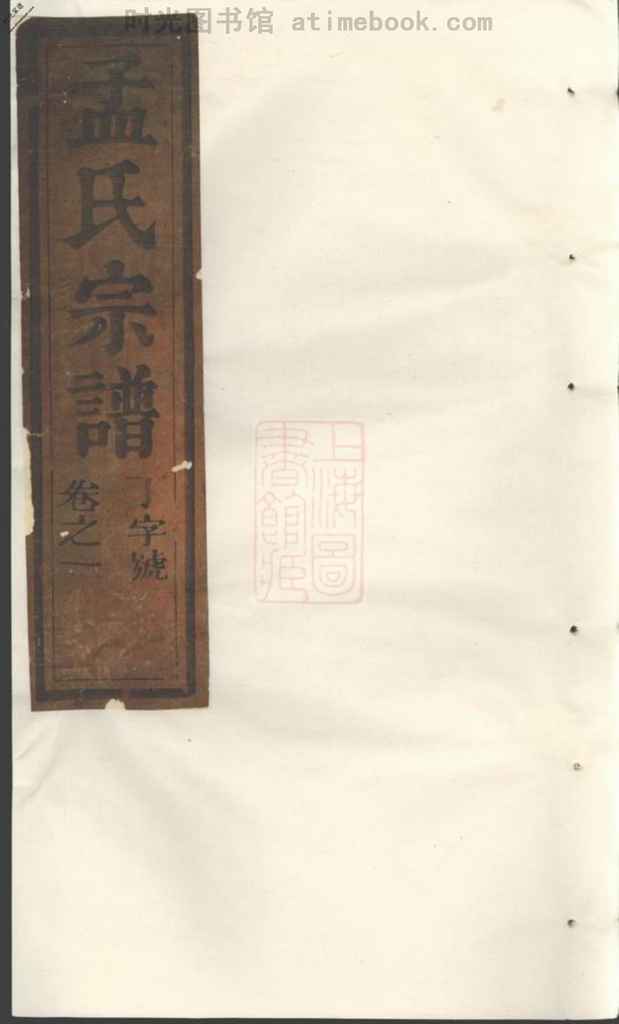 时光图书馆 atimebook.com
孟氏宗譜
丁字號
卷之一
上海圖
書館藏